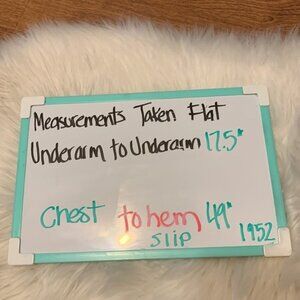 Measurements Taken Flat
Underarm to Underarm 17.5"
Chest to hem 49"
slip
1952